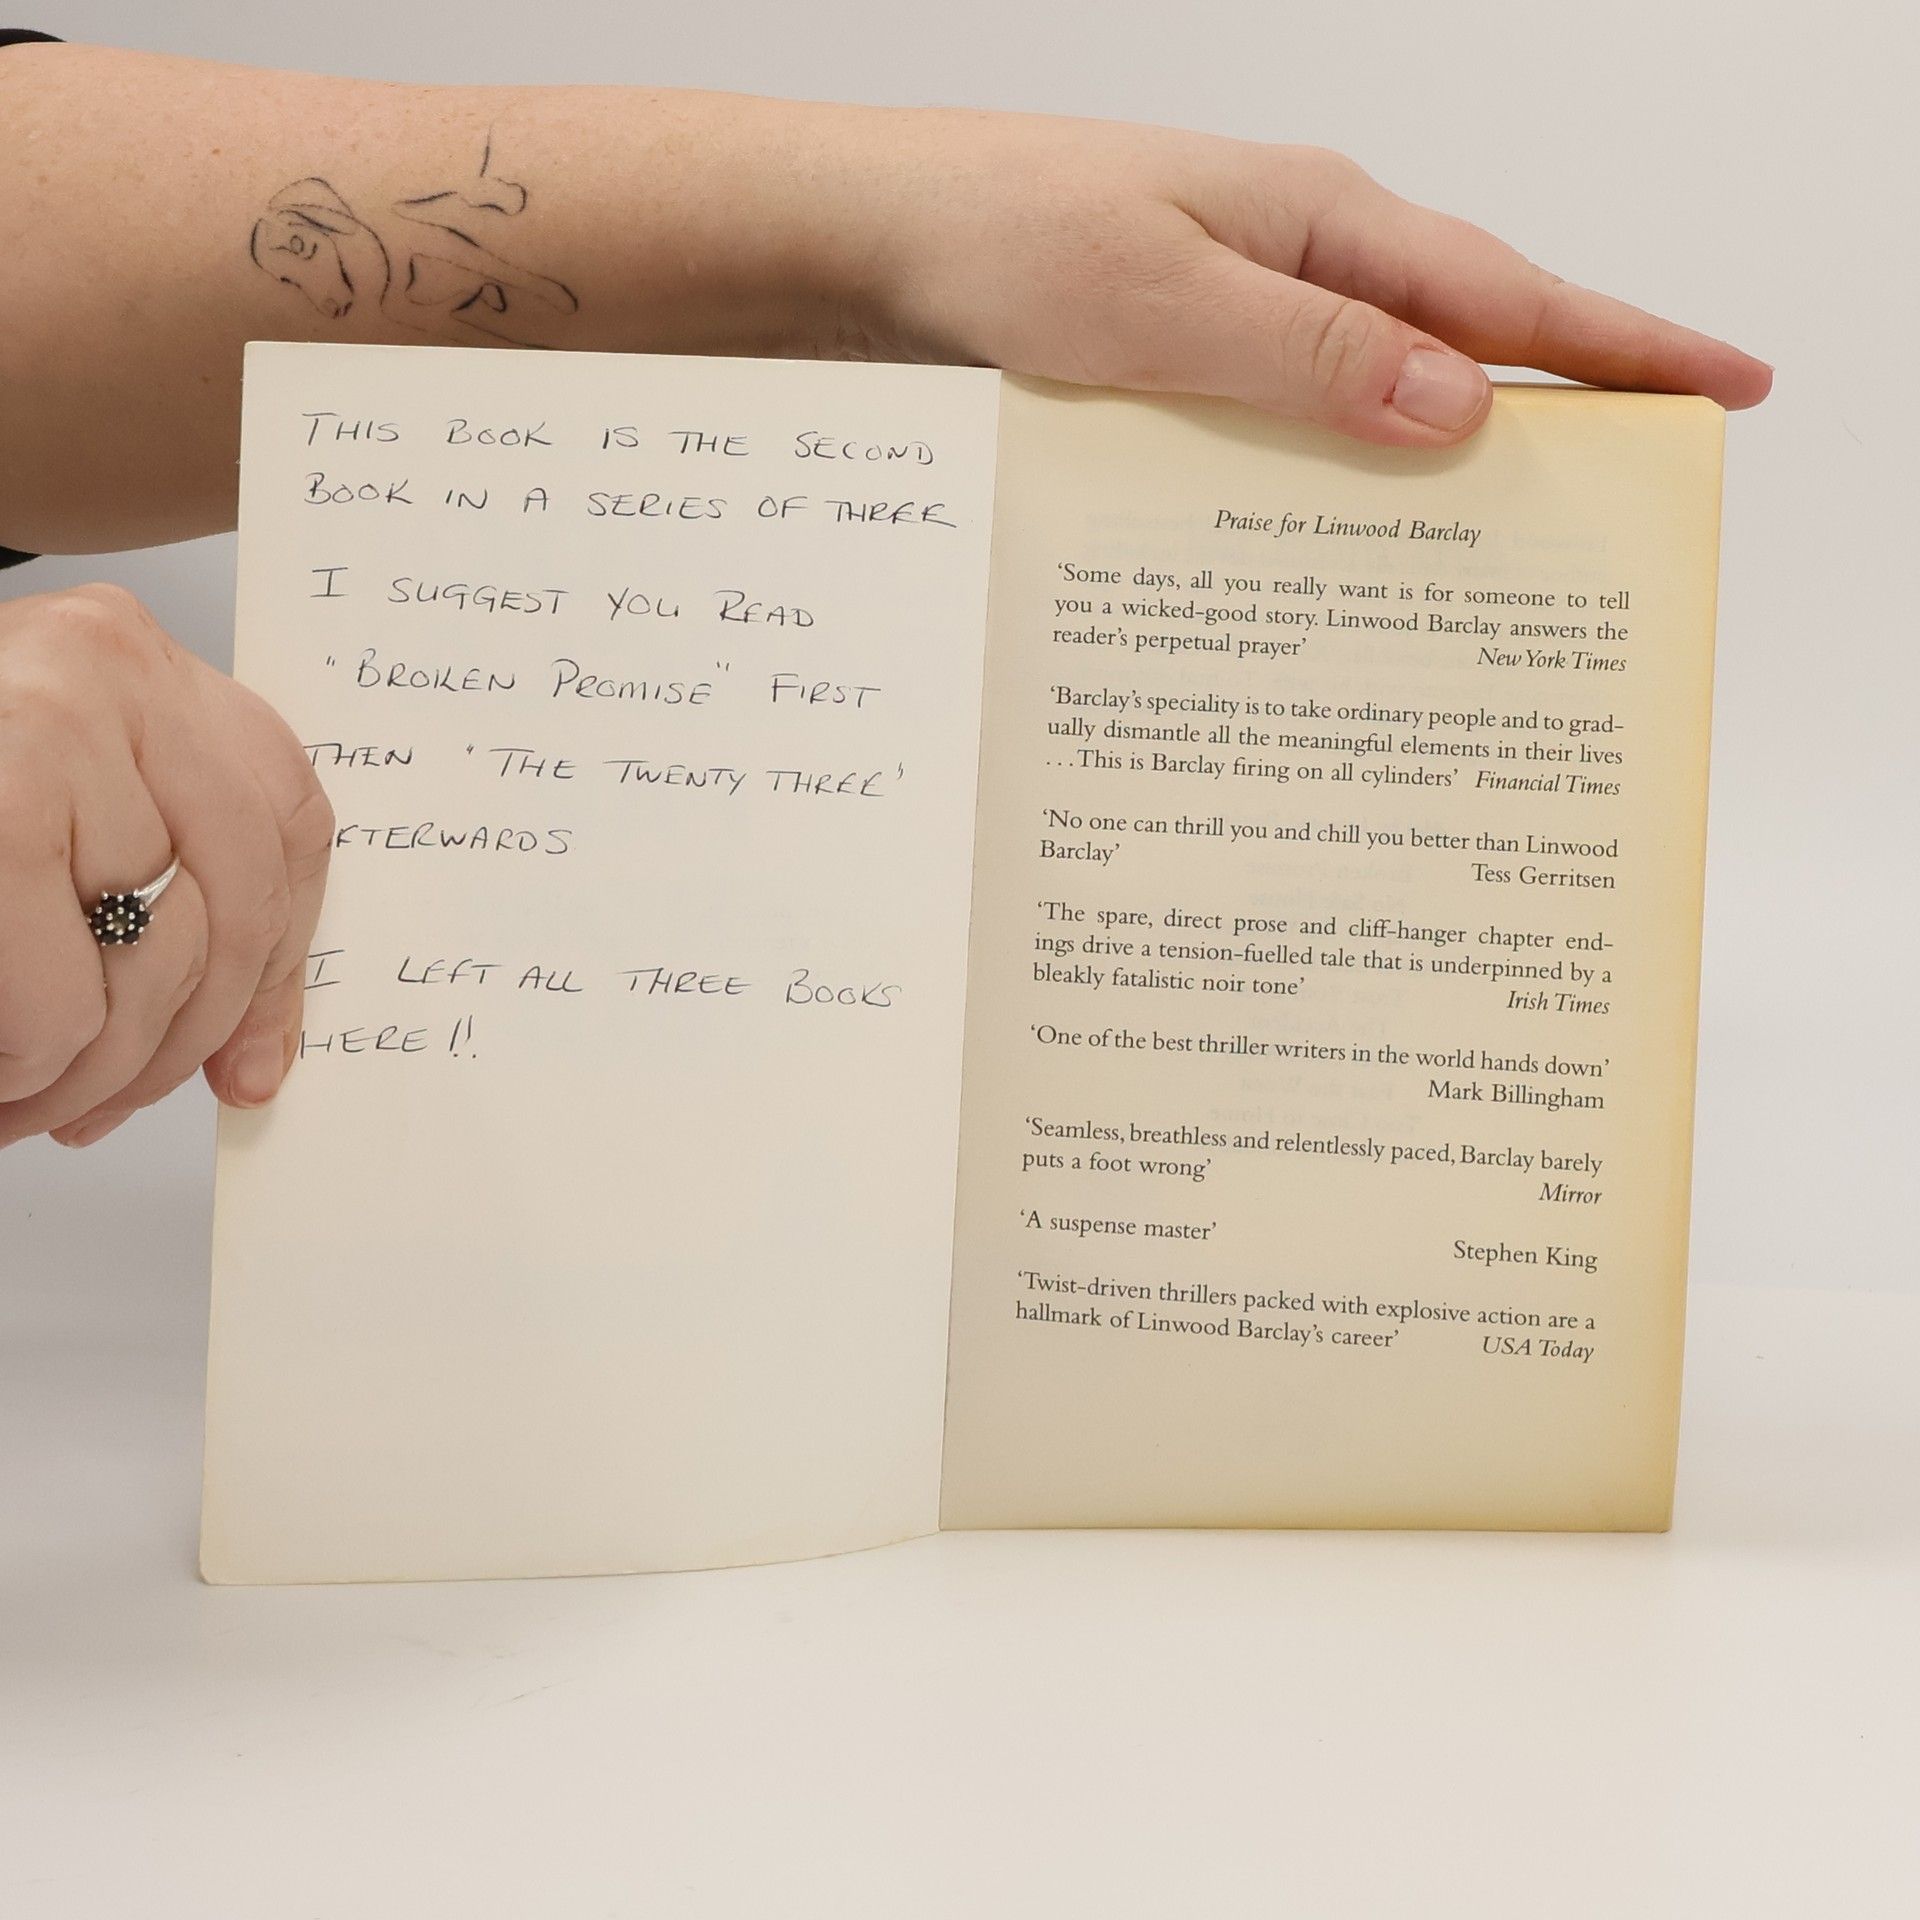 THIS BOOK IS THE SECOND
BOOK IN A SERIES OF THREE
I SUGGEST YOU READ
"BROKEN PROMISE" FIRST
THEN "THE TWENTY THREE"
AFTERWARDS
I LEFT ALL THREE BOOKS
HERE!!
Praise for Linwood Barclay
‘Some days, all you really want is for someone to tell
you a wicked-good story. Linwood Barclay answers the
reader’s perpetual prayer’ New York Times
‘Barclay’s speciality is to take ordinary people and to grad-
ually dismantle all the meaningful elements in their lives
...This is Barclay firing on all cylinders’ Financial Times
‘No one can thrill you and chill you better than Linwood
Barclay’ Tess Gerritsen
‘The spare, direct prose and cliff-hanger chapter end-
ings drive a tension-fuelled tale that is underpinned by a
bleakly fatalistic noir tone’ Irish Times
‘One of the best thriller writers in the world hands down’
Mark Billingham
‘Seamless, breathless and relentlessly paced, Barclay barely
puts a foot wrong’ Mirror
‘A suspense master’ Stephen King
‘Twist-driven thrillers packed with explosive action are a
hallmark of Linwood Barclay’s career’ USA Today